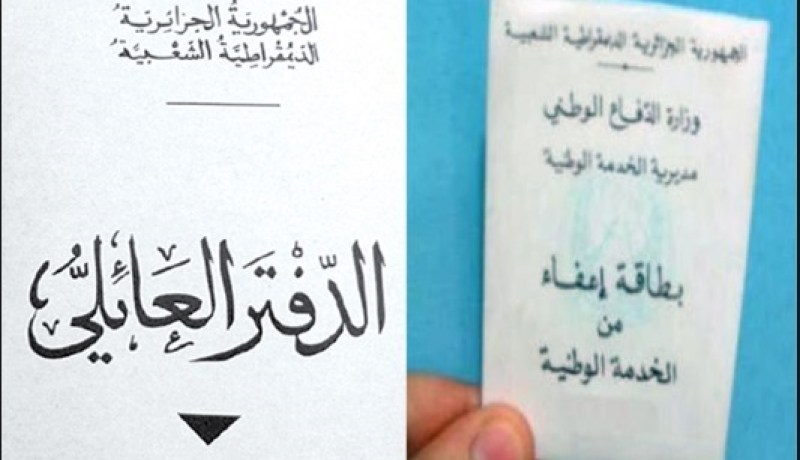 الجُمْهُورِيَةُ الجَزَائِرِيَّةُ
الدِيمُقْرَاطِيَّةُ الشَّعْبِيَّةُ
الدّفْتَر العَائِليُّ
الجمهورية الجزائرية الديمقراطية الشعبية
وزارة الدّفاع الوطني
مديرية الخدمة الوطنية
بطاقة إعفاء
من
الخدمة الوطنية